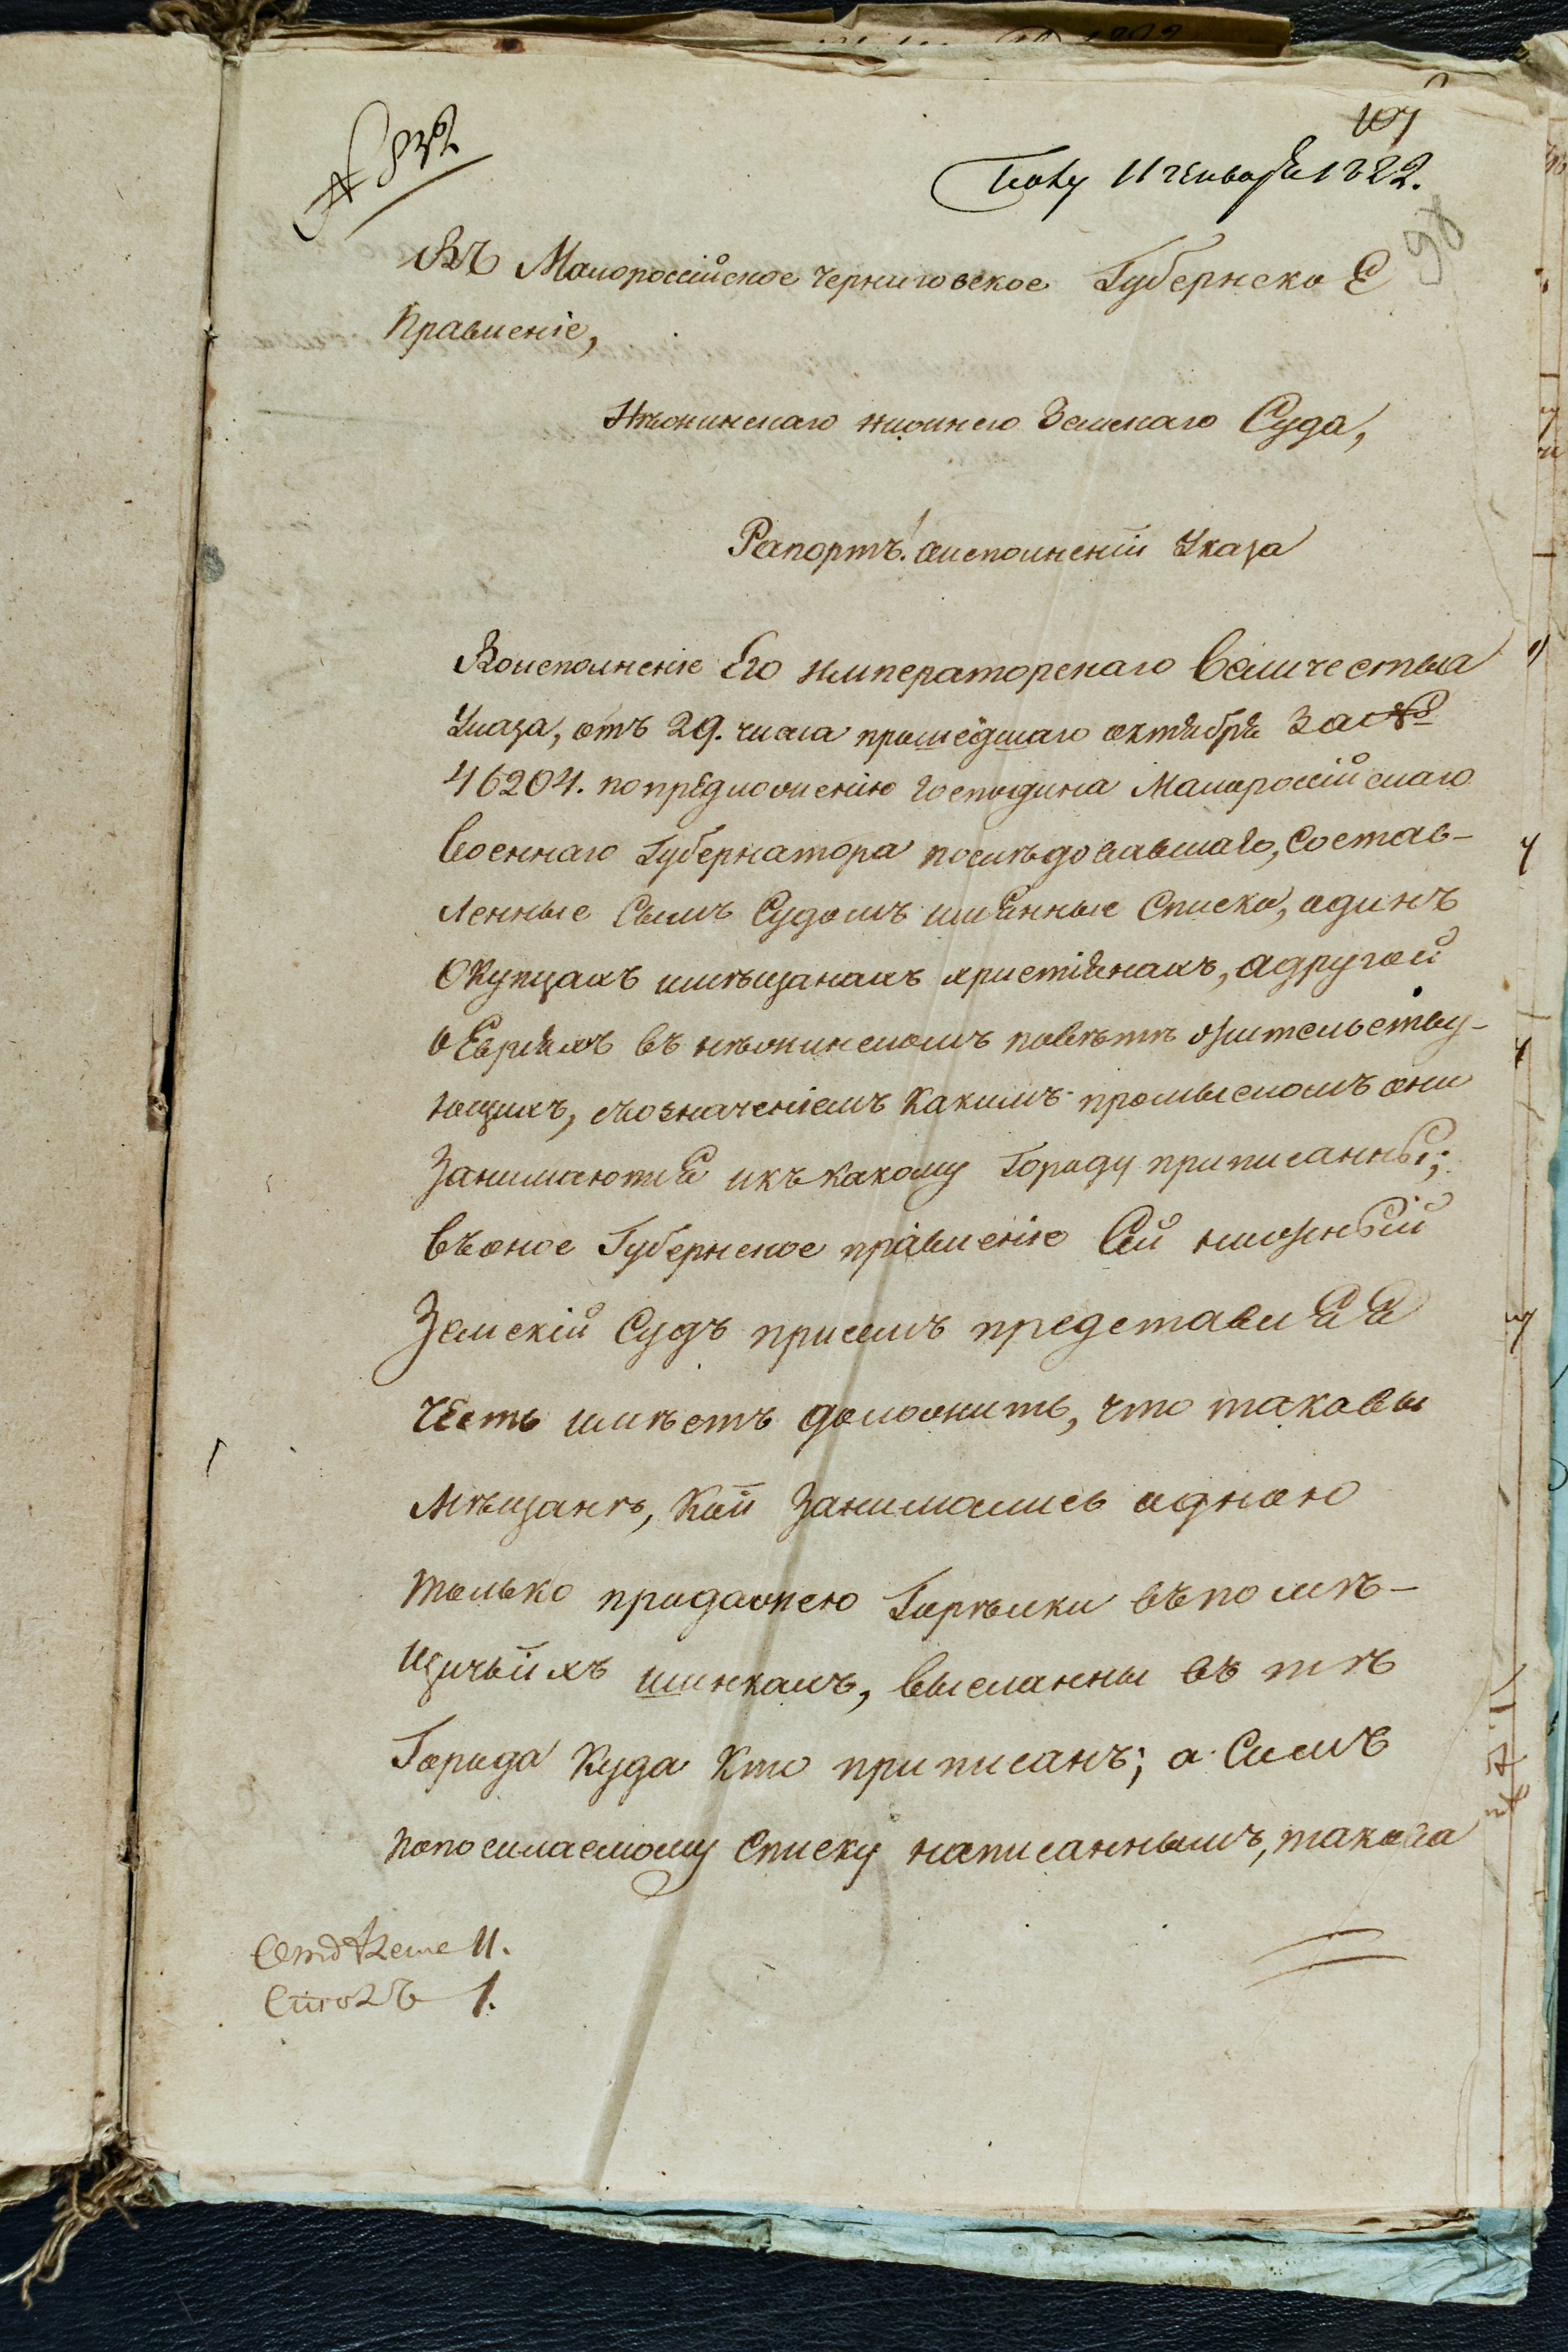 107
98
11 генваря 1822.
Въ Малороссійское Черниговское Губернское
Правленіе,
Нѣжинскаго нижнего Земскаго Суда,
Рапортъ! Оисполненіи Указа
Воисполненіе Его Императорскаго Величества
Указа, отъ 29. числа прошедшаго октября За №
46204. попредложенію Господина Малороссійскаго
Военнаго Губернатора послѣдовавшаго, Состав-
ленные Симъ Судомъ имянные Списки, одинъ
ОКупцахъ имѣщанахъ христіянахъ, адругой
оЕвреяхъ въ нѣжинскомъ повѣтѣ жительству-
ющихъ, съозначеніемъ Какимъ промысломъ они
Занимаются икъ какому Городу приписанны;
въоное Губернское правленіе Сей нижный
Земскій Судъ присемъ представляя
Честь имѣетъ доложить, что таковы
Мѣщанѣ, Кои Занимались одною
только продажею Горѣлки въпомѣ-
щичьихъ шинкахъ, высланны въ тѣ
Города Куда Кто приписанъ; а Симъ
попосилаемому Списку написаннымъ, такова
11.
1.